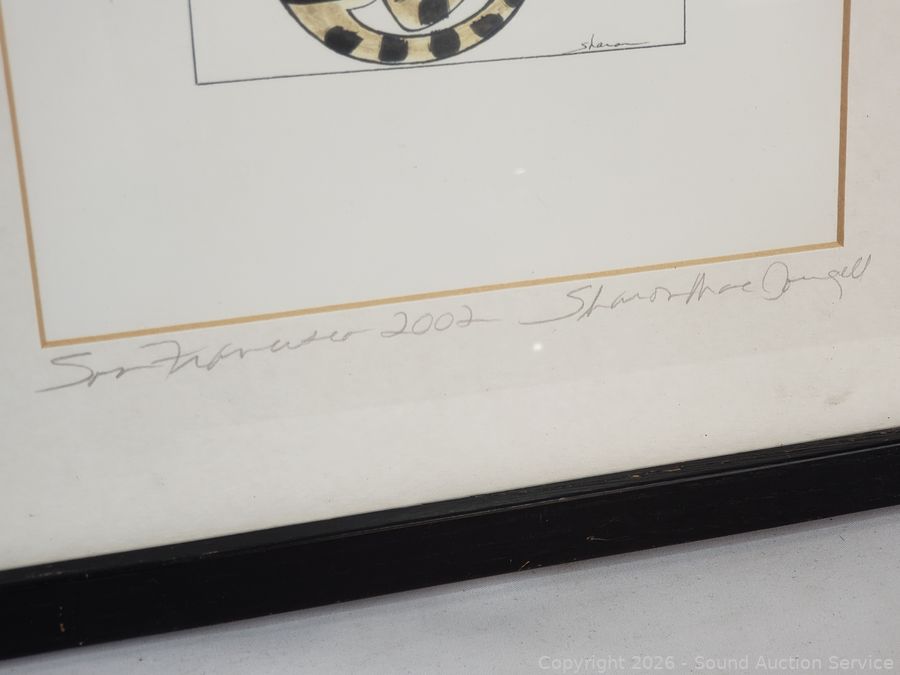 sharon
San Francisco 2002 Sharon Mac Dougall
Copyright 2026 - Sound Auction Service